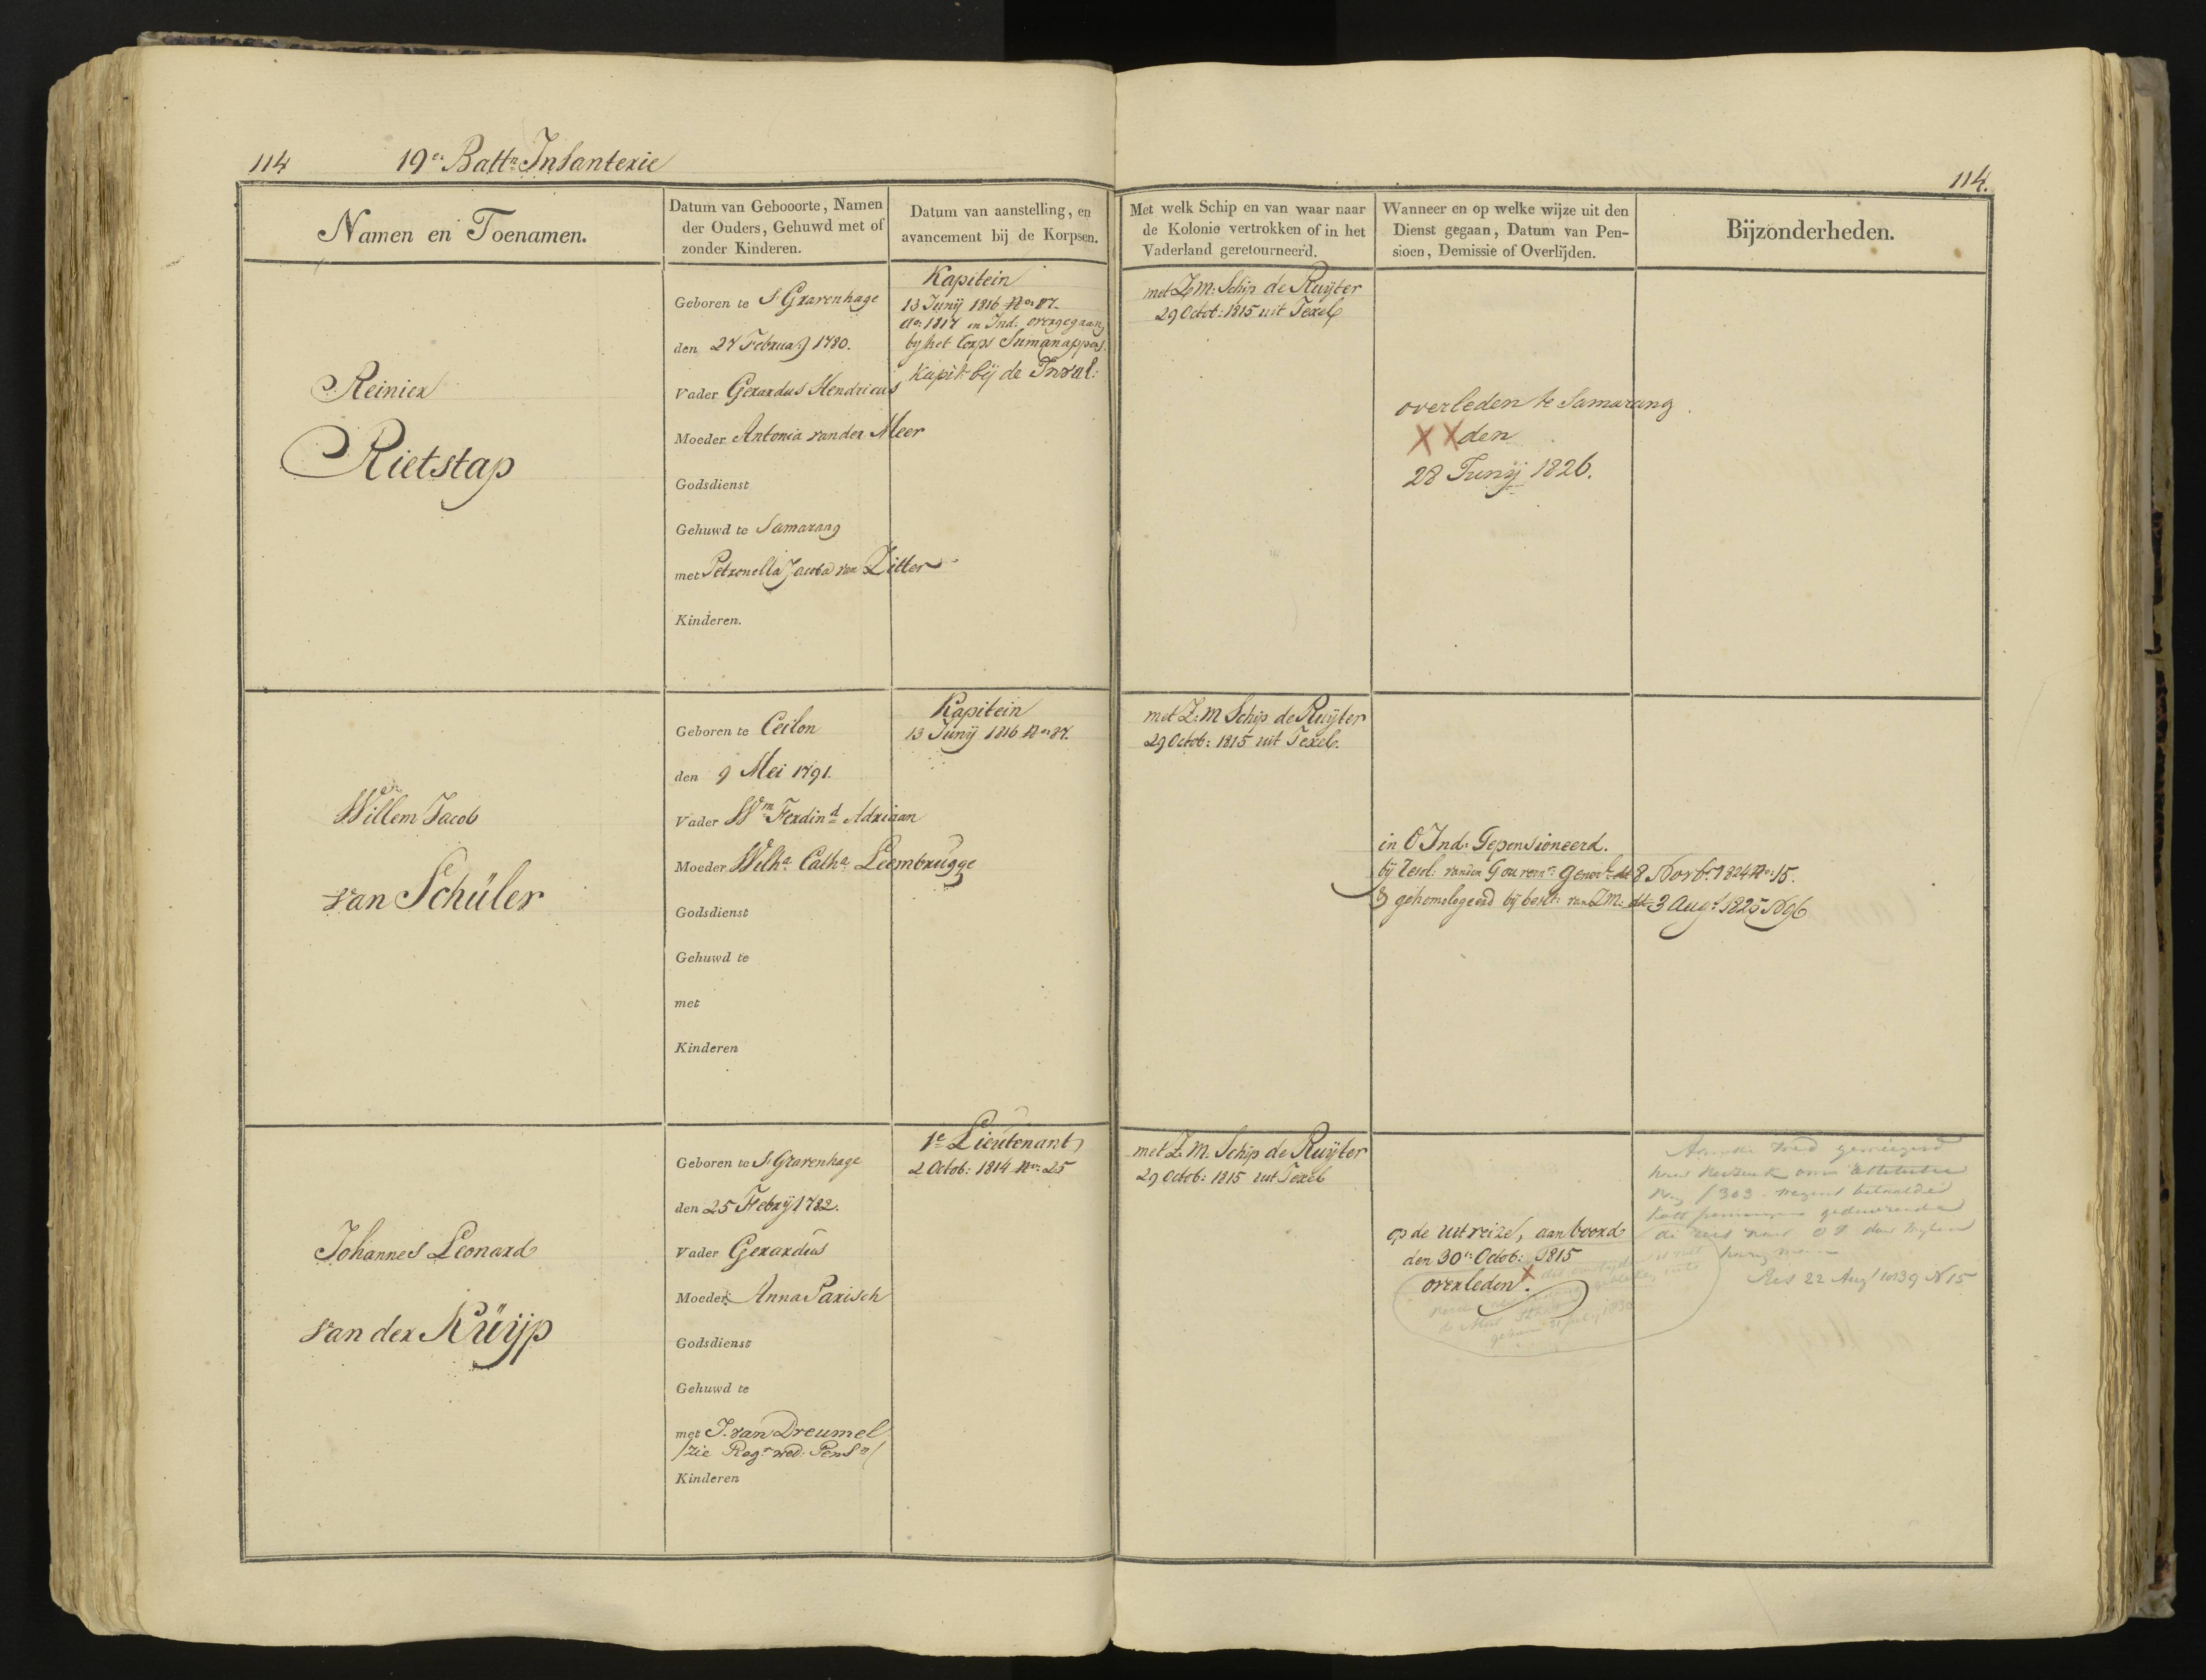 114
19e Battn Infanterie
114.
Namen en Toenamen.
Datum van Gebooorte, Namen
der Ouders, Gehuwd met of
zonder Kinderen.
Datum van aanstelling, en
avancement bij de Korpsen.
Met welk Schip en van waar naar
de Kolonie vertrokken of in het
Vaderland geretourneerd.
Wanneer en op welke wijze uit den
Dienst gegaan, Datum van Pen-
sioen, Demissie of Overlijden.
Bijzonderheden.
Reinier
Rietstap
Geboren te S Gravenhage
den 27 Februarij 1780.
Vader Gerardus Hendricus
Moeder Antonia vander Meer
Godsdienst
Gehuwd te Samarang
met Petronella Jacoba van Zitter
Kinderen.
Kapitein
13 Junij 1816 No: 87.
Ao: 1817 in Ind: overgegaan
by het Corps Sumanappers.
Kapit: bij de Inval:
met Z.M: Schip de Ruijter
29 Octob: 1815 uit Texel
overleden te Samarang
X X den
28 Junij 1826.
Willem Jacob
van Schüler
Geboren te Ceilon
den 9 Mei 1791.
Vader Wm Ferdind Adriaan
Moeder Wilha Catha Leembrugge
Godsdienst
Gehuwd te
met
Kinderen
Kapitein
13 Junij 1816 No: 87.
met Z.M Schip de Ruijter
29 Octob: 1815 uit Texel.
in O Ind: Gepensioneerd.
bij Resol: vanden Gouvern: Generl: dd 8 Novbr 1824 No: 15.
& gehomologeerd bij beslt: van ZM: dd 3 Augt 1825 No 96
Johannes Leonard
van der Küijp
Geboren te S Gravenhage
den 25 Febrij 1782.
Vader Gerardus
Moeder Anna Parisch
Godsdienst
Gehuwd te
met J. van Dreumel
/zie Regr wed: Pensn/
Kinderen
1e Lieutenant
2 Octob: 1814 No: 25
met Z.M. Schip de Ruijter
29 Octob: 1815 uit Texel
op de uitreize, aan boord
den 30e: Octob: 1815
overleden. X
Res 22 Aug 1839 N 15